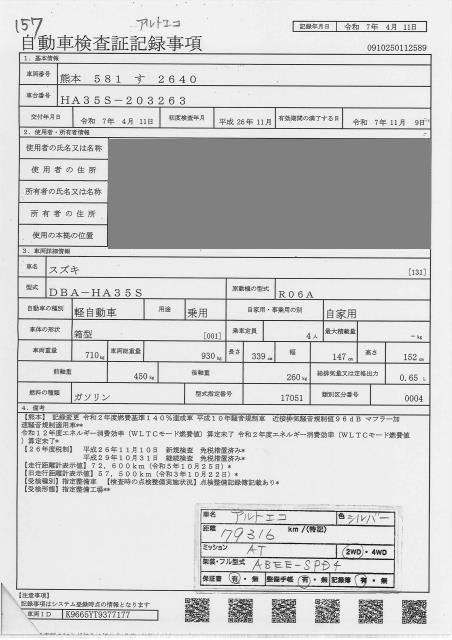 157
アルトエコ
記録年月日 令和 7年 4月 11日
自動車検査証記録事項
0910250112589
1. 基本情報
車両番号 熊本 581 す 2640
車台番号 HA35S-203263
交付年月日 令和 7年 4月 11日 初度検査年月 平成 26年11月 有効期間の満了する日 令和 7年11月 9日
2. 使用者・所有者情報
使用者の氏名又は名称
使用者の住所
所有者の氏名又は名称
所有者の住所
使用の本拠の位置
3. 車両詳細情報
車名 スズキ [131]
型式 DBA-HA35S 原動機の型式 R06A
自動車の種別 軽自動車 用途 乗用 自家用・事業用の別 自家用
車体の形状 箱型 [001] 乗車定員 4人 最大積載量 -kg
車両重量 710kg 車両総重量 930kg 長さ 339cm 幅 147cm 高さ 152cm
前軸重 450kg 後軸重 260kg 総排気量又は定格出力 0.65 L
燃料の種類 ガソリン 型式指定番号 17051 類別区分番号 0004
4. 備考
【熊本】 記録変更 令和2年度燃費基準140%達成車 平成10年騒音規制車 近接排気騒音規制値96dB マフラー加
速騒音規制適用車**
令和12年度エネルギー消費効率(WLTCモード燃費値)算定未了 令和2年度エネルギー消費効率(WLTCモード燃費値
)算定未了*
【26年度税制】 平成26年11月10日 新規検査 免税措置済み*
平成29年10月31日 継続検査 免税措置済み*
【走行距離計表示値】72,600km(令和5年10月25日)*
【旧走行距離計表示値】57,500km(令和3年10月22日)*
【受検種別】指定整備車 【検査時の点検整備実施状況】点検整備記録簿記載あり*
【受検形態】指定整備工場**
車名 アルトエコ 色 シルバー
距離 79316 km/(特記)
ミッション AT 2WD・4WD
架装・フル型式 ABEE-SPD4
保証書 有・無 整備手帳 有・無 記録簿 有・無
【注意事項】
記録事項はシステム登録時点の情報となります
車両ID K9665YT9377177